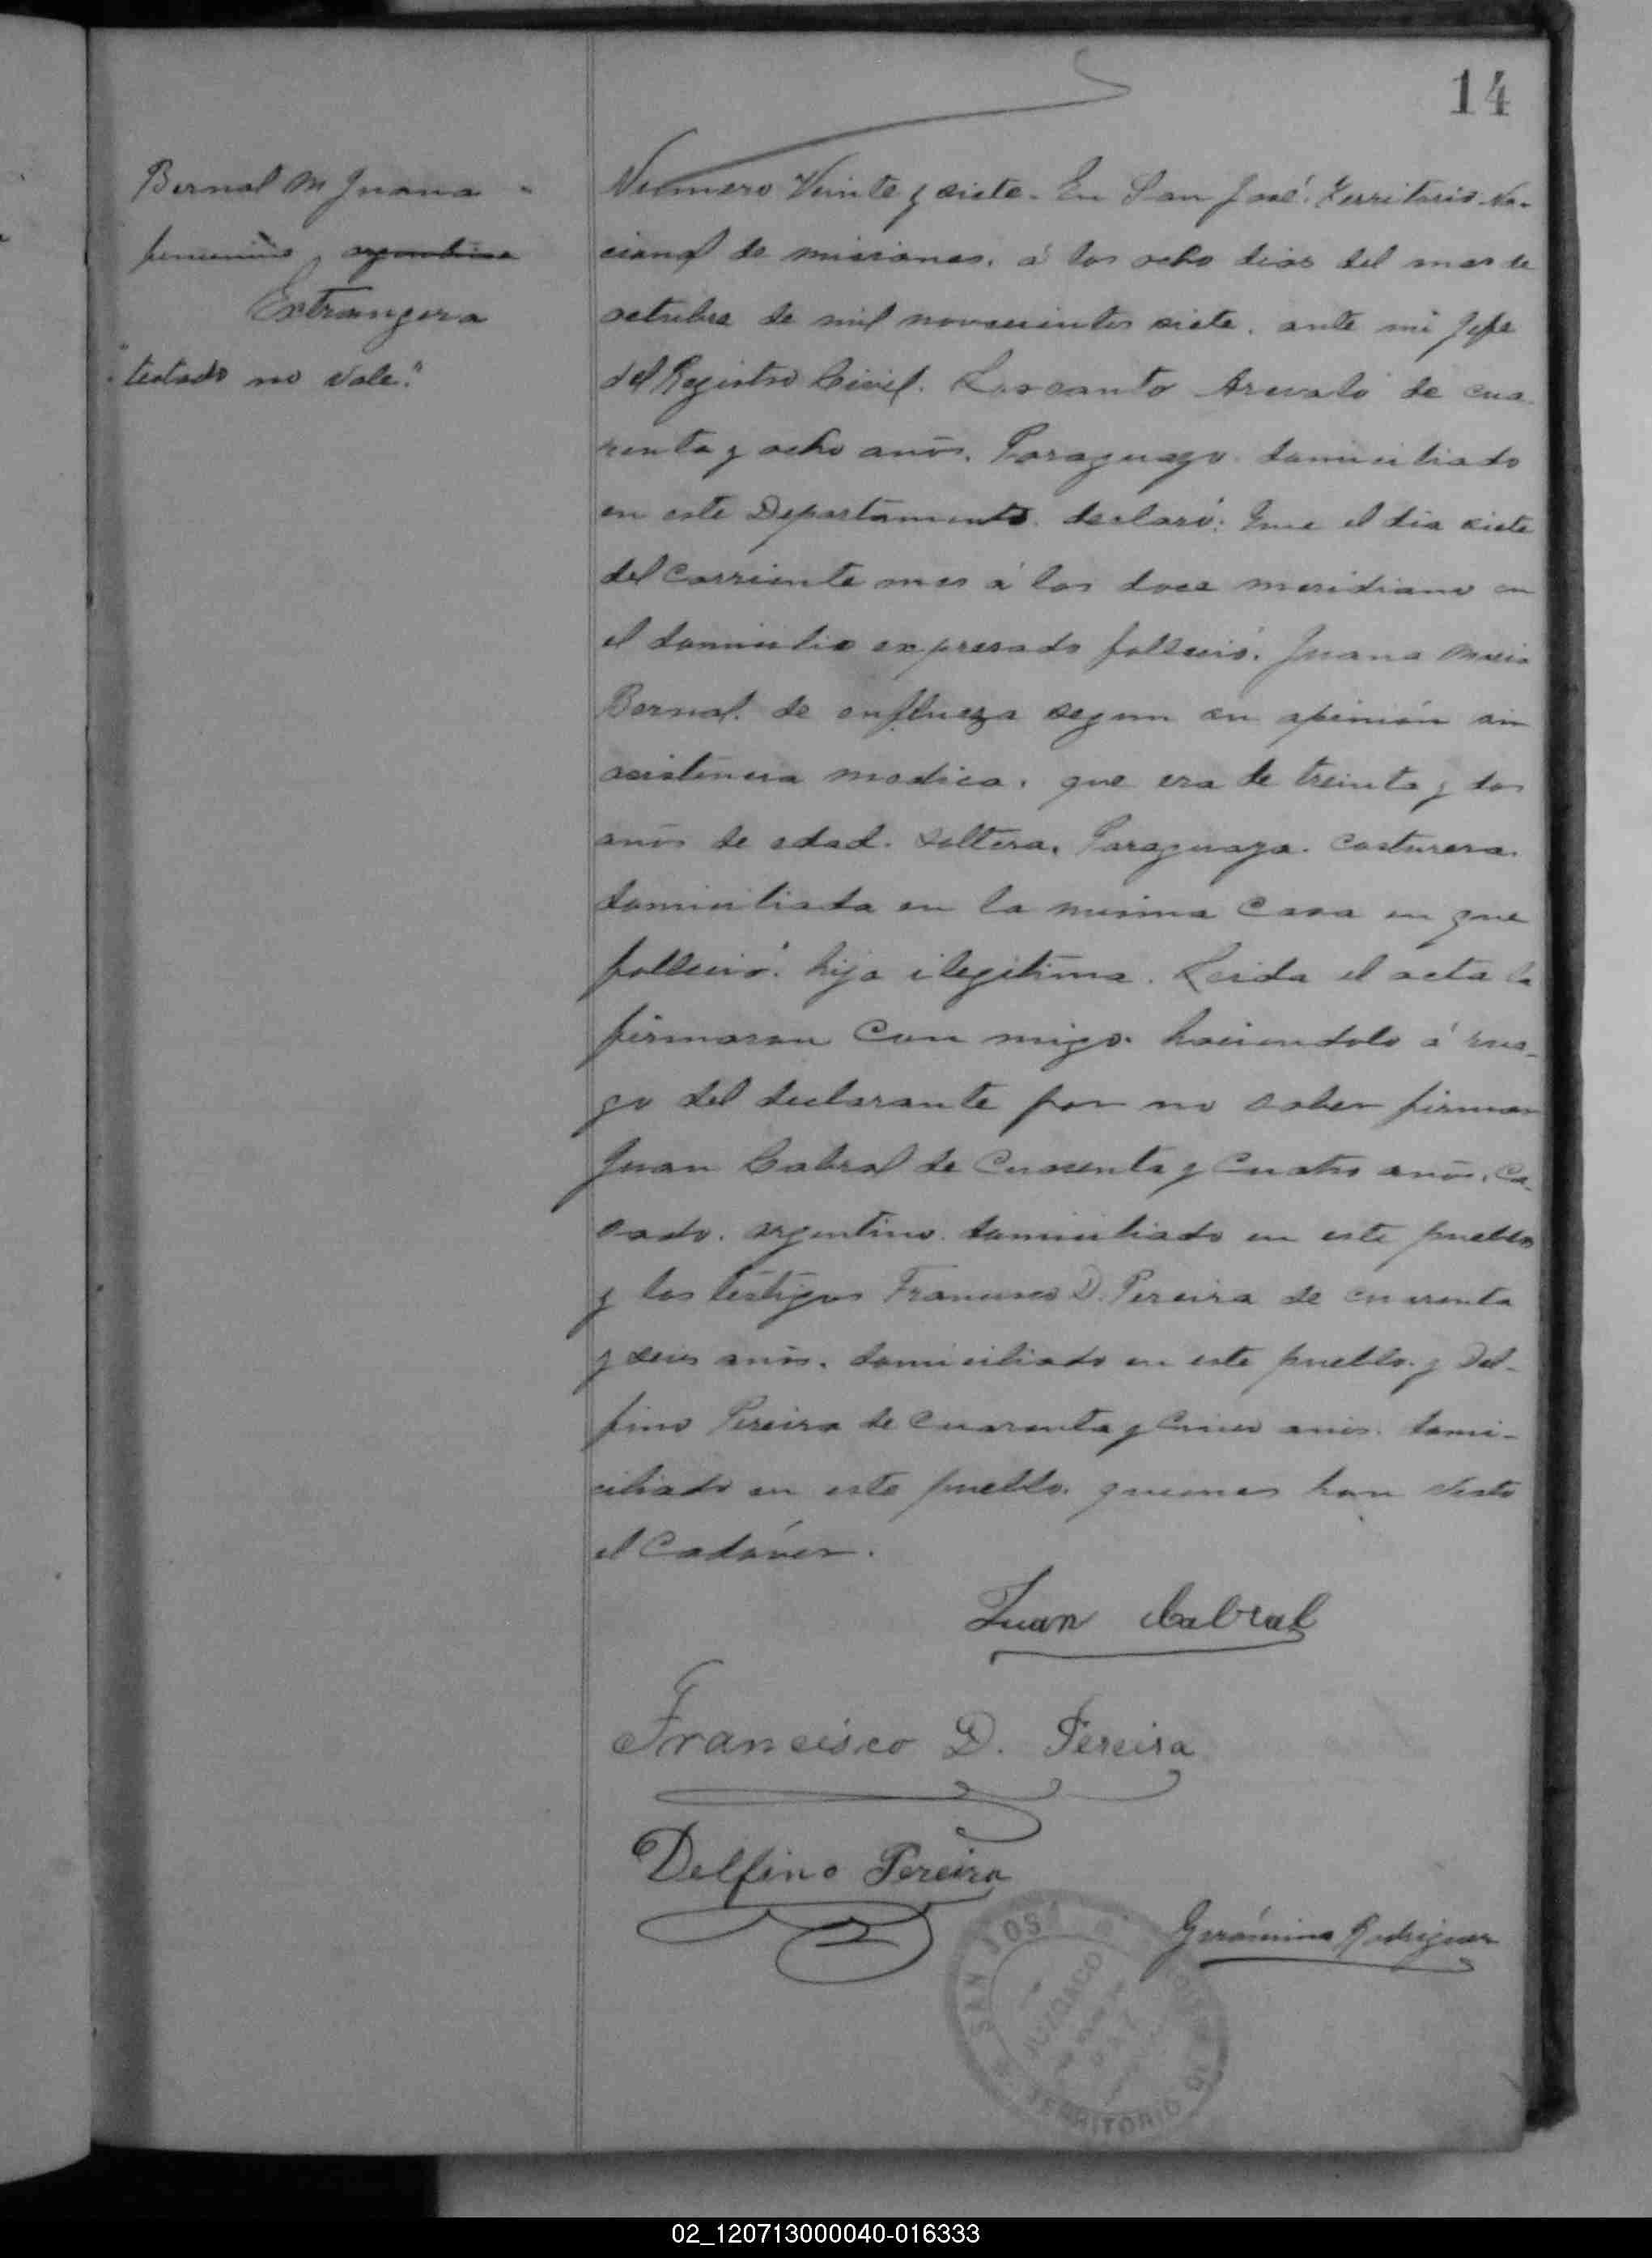 14
Bernal M Juana
femenino, argentina
Extrangera
"testado no vale."
Numero Veinte y siete. En San José. Territorio Na-
cional de misiones. á los ocho dias del mes de
octubre de mil novecientos siete. ante mi Jefe
del Registro Civil. Arevalo de cua-
renta y ocho años. Paraguayo. domiciliado
en este Departamento. declaró: Que el dia siete
del corriente mes á las doce meridiano en
el domicilio expresado falleció. Juana Maria
Bernal. de enflueza segun su opinión sin
asistencia medica. que era de treinta y dos
años de edad. soltera. Paraguaya. costurera.
domiciliada en la misma casa en que
falleció. hija ilegitima. Leida el acta la
firmaron con migo. haciendolo á rue-
go del declarante por no saber firmar
Juan Cabral de cuarenta y cuatro años. ca-
sado. argentino. domiciliado en este pueblo
y los testigos Francisco D. Pereira de cuarenta
y seis años. domiciliado en este pueblo. y Del-
fino Pereira de cuarenta y cinco años. domi-
ciliado en este pueblo. quienes han visto
el cadáver.
Juan Cabral
Francisco D. Pereira
Delfino Pereira
Gerónimo Rodriguez
SAN JOSÉ
JUZGADO
PAZ
TERRITORIO DE
02_120713000040-016333